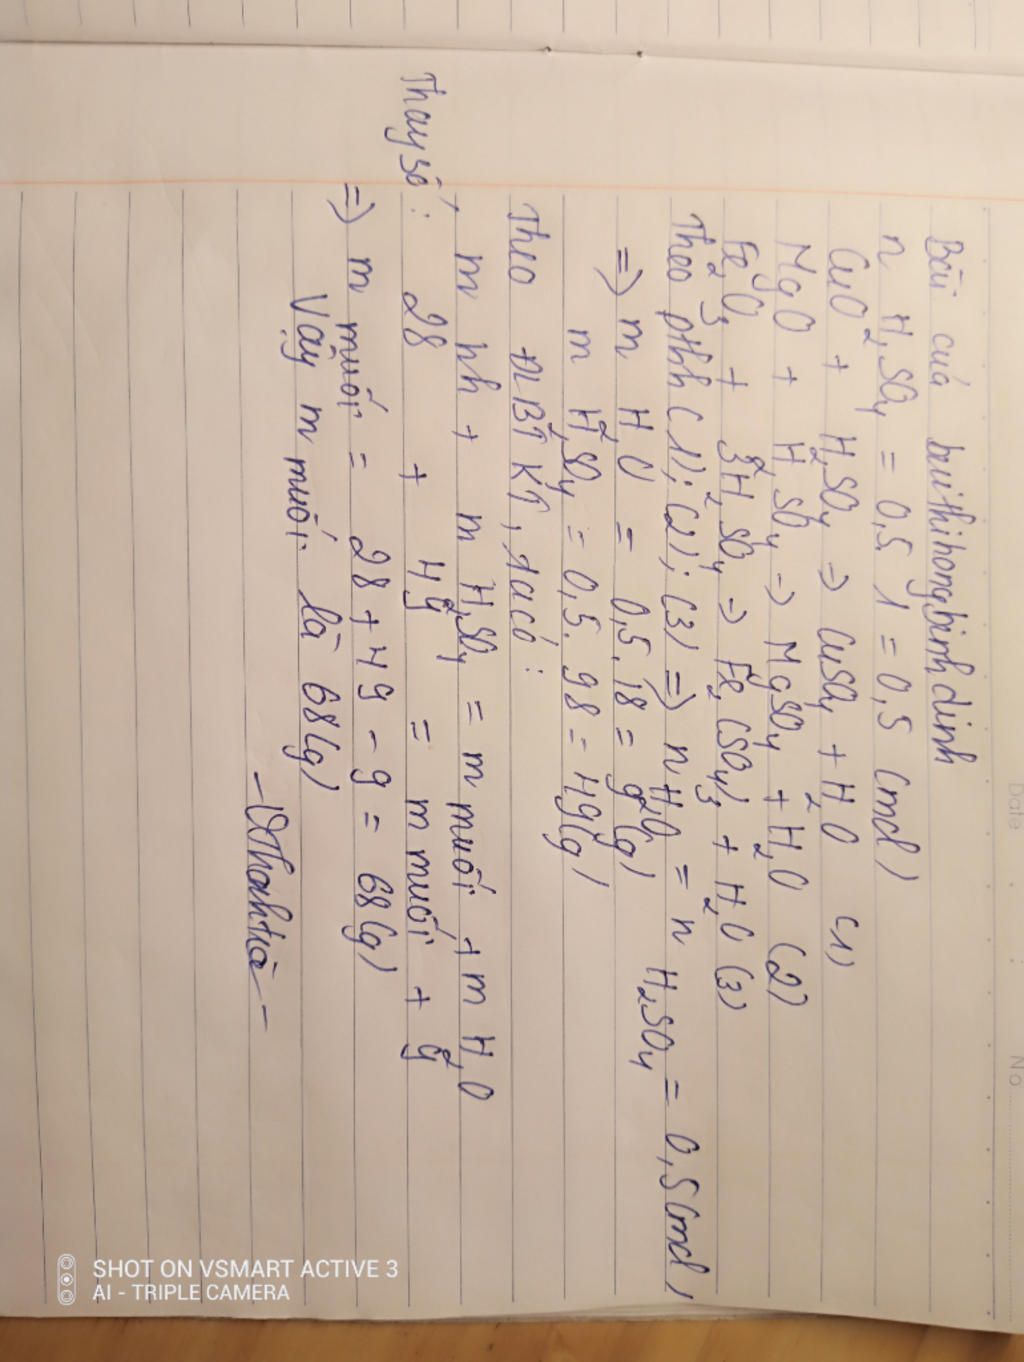 Date
No
Bài của buithihongbinhdinh
n H₂SO₄ = 0,5.1 = 0,5 (mol)
CuO + H₂SO₄ => CuSO₄ + H₂O (1)
MgO + H₂SO₄ => MgSO₄ + H₂O (2)
Fe₂O₃ + 3H₂SO₄ => Fe₂(SO₄)₃ + H₂O (3)
Theo pthh (1); (2); (3) => n H₂O = n H₂SO₄ = 0,5 (mol)
=> m H₂O = 0,5.18 = 9 (g)
m H₂SO₄ = 0,5.98 = 49 (g)
Theo ĐLBTKT, ta có:
m hh + m H₂SO₄ = m muối + m H₂O
Thay số: 28 + 49 = m muối + 9
=> m muối = 28 + 49 - 9 = 68 (g)
Vậy m muối là 68 (g)
SHOT ON VSMART ACTIVE 3
AI - TRIPLE CAMERA